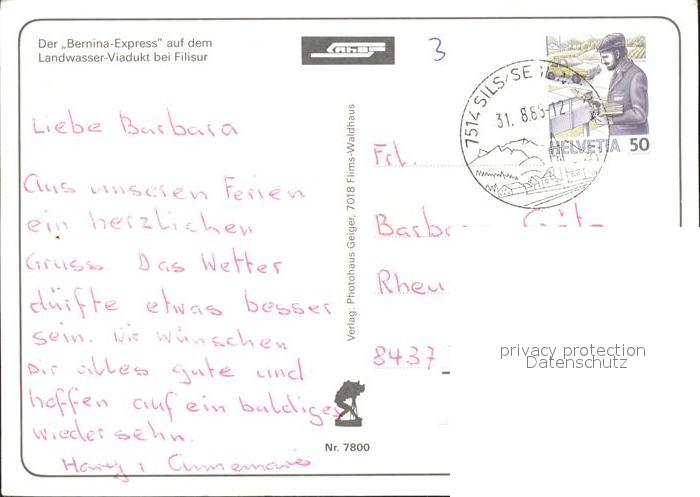 Der „Bernina-Express“ auf dem
Landwasser-Viadukt bei Filisur
3
7514 SILS/SE
31. 8.88-12
HELVETIA 50
Liebe Barbara
Aus unseren Ferien
ein herzlichen
Gruss. Das Wetter
dürfte etwas besser
sein. Wir wünschen
Dir alles gute und
hoffen auf ein baldiges
wiedersehn.
Annemarie
Verlag: Photohaus Geiger, 7018 Flims-Waldhaus
Nr. 7800
Frl.
Barba
Rheu
8437
privacy protection
Datenschutz